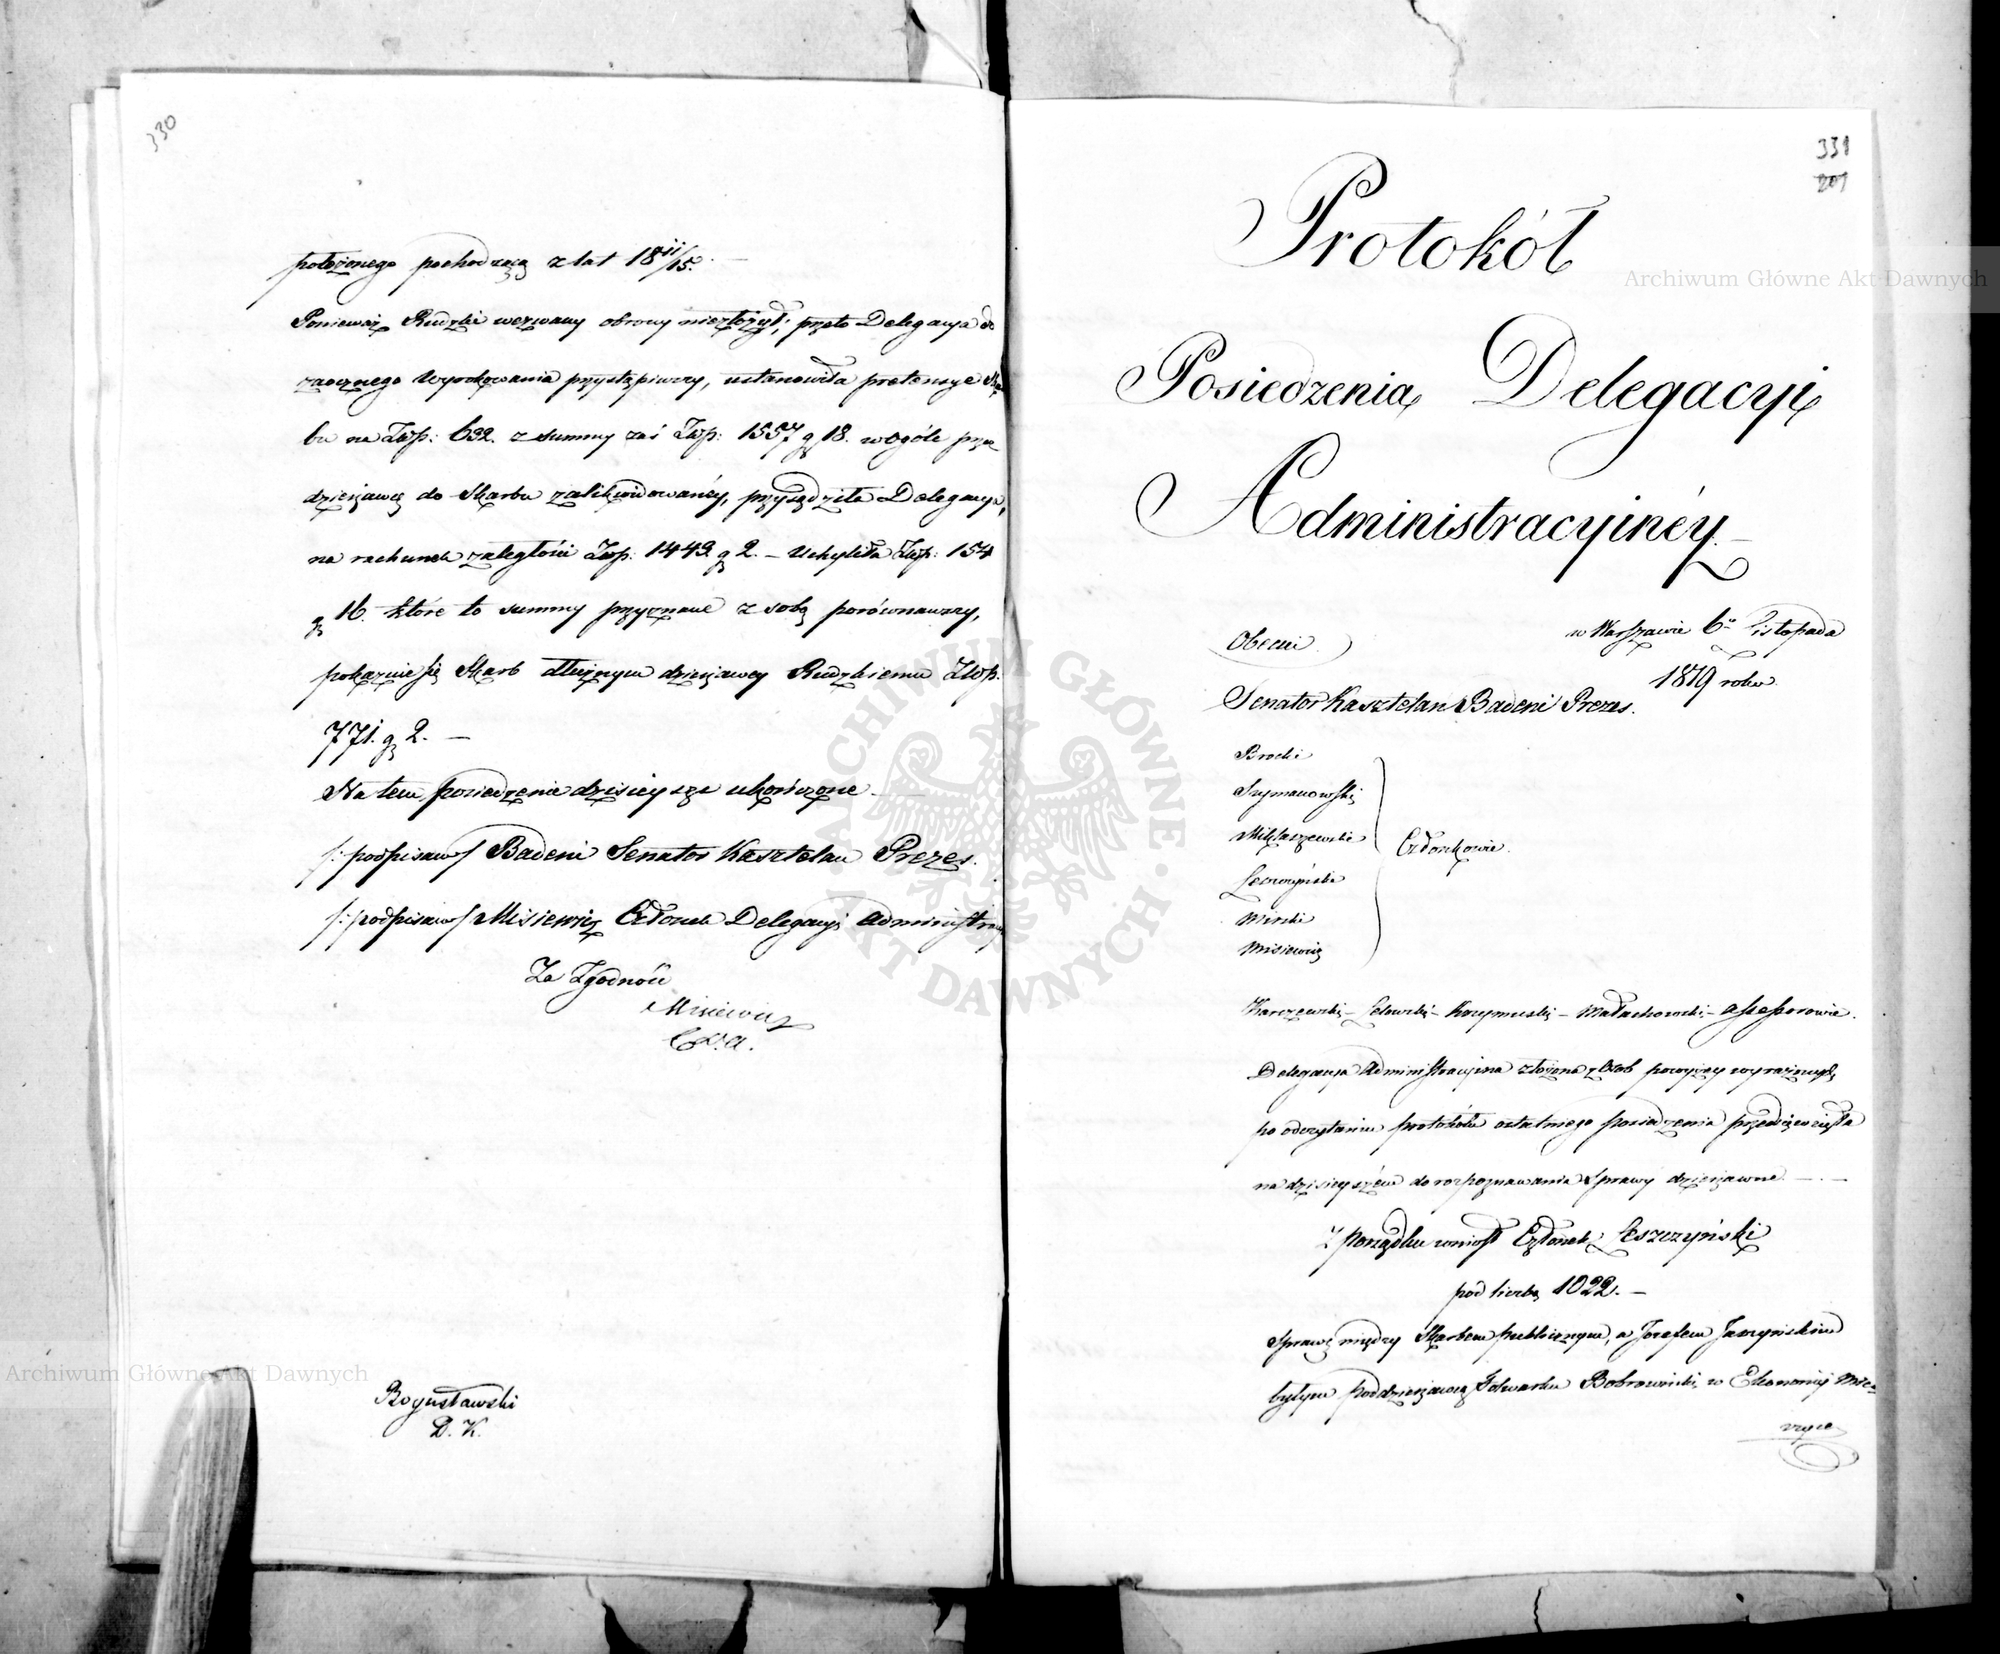 330
położonego pochodzącą z lat 18 11/15.
Ponieważ Rudzki wezwany obrony niezłożył; przeto Delegacya do
zaocznego wyrokowania przystąpiwszy, ustanowiła pretensye Skar
bu na Złłp: 632. z summy zaś Złłp: 1557 g 18. w ogóle przez
dzierżawcę do Skarbu zalikwidowanéy, przysądziła Delegacya,
na rachunek zaległości Złłp: 1449. g 2. – Uchyliła Złłp: 154
g 16. które to summy przyznane z sobą porównawszy,
pokazuie się Skarb dłużnym dzierżawcy Rudzkiemu Złłp.
771. g 2. –
Na tem posiedzenie dzisieysze ukończone. –
/: podpisano / Badeni Senator Kasztelan Prezes.
/: podpisano / Misiewicz Członek Delegacyi Administracy
Za Zgodność
Misiewicz
Bogusławski
D. K.
331
201
Protokół
Posiedzenia Delegacyi
Administracyinéy. –
w Warszawie 6o Listopada
1819 roku.
Obecni
Senator Kasztelan Badeni Prezes.
Brocki
Szymanowski
Miklaszewski
Członkowie.
Leszczyński
Minski
Misiewicz
Karczewski – Lelowski – – Małachowski – Assessorowie.
Delegacya Administracyina złożona z Osob powyżey wyrażonych,
po odczytaniu protokołu ostatniego posiedzenia przedsięwzięła
na dzisieyszém do rozpoznawania Sprawy dzierżawne. – . –
Z porządku wniosł Członek Leszczyński
pod liczbą 1022. –
Sprawę między Skarbem publicznym, a Jozefem Jaszczyńskim
byłym poddzierżawcą folwarku Bobrowniki w Ekonomij Mie-